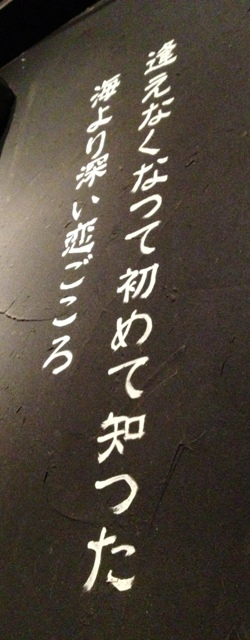 逢えなくなって初めて知った
海より深い恋ごころ